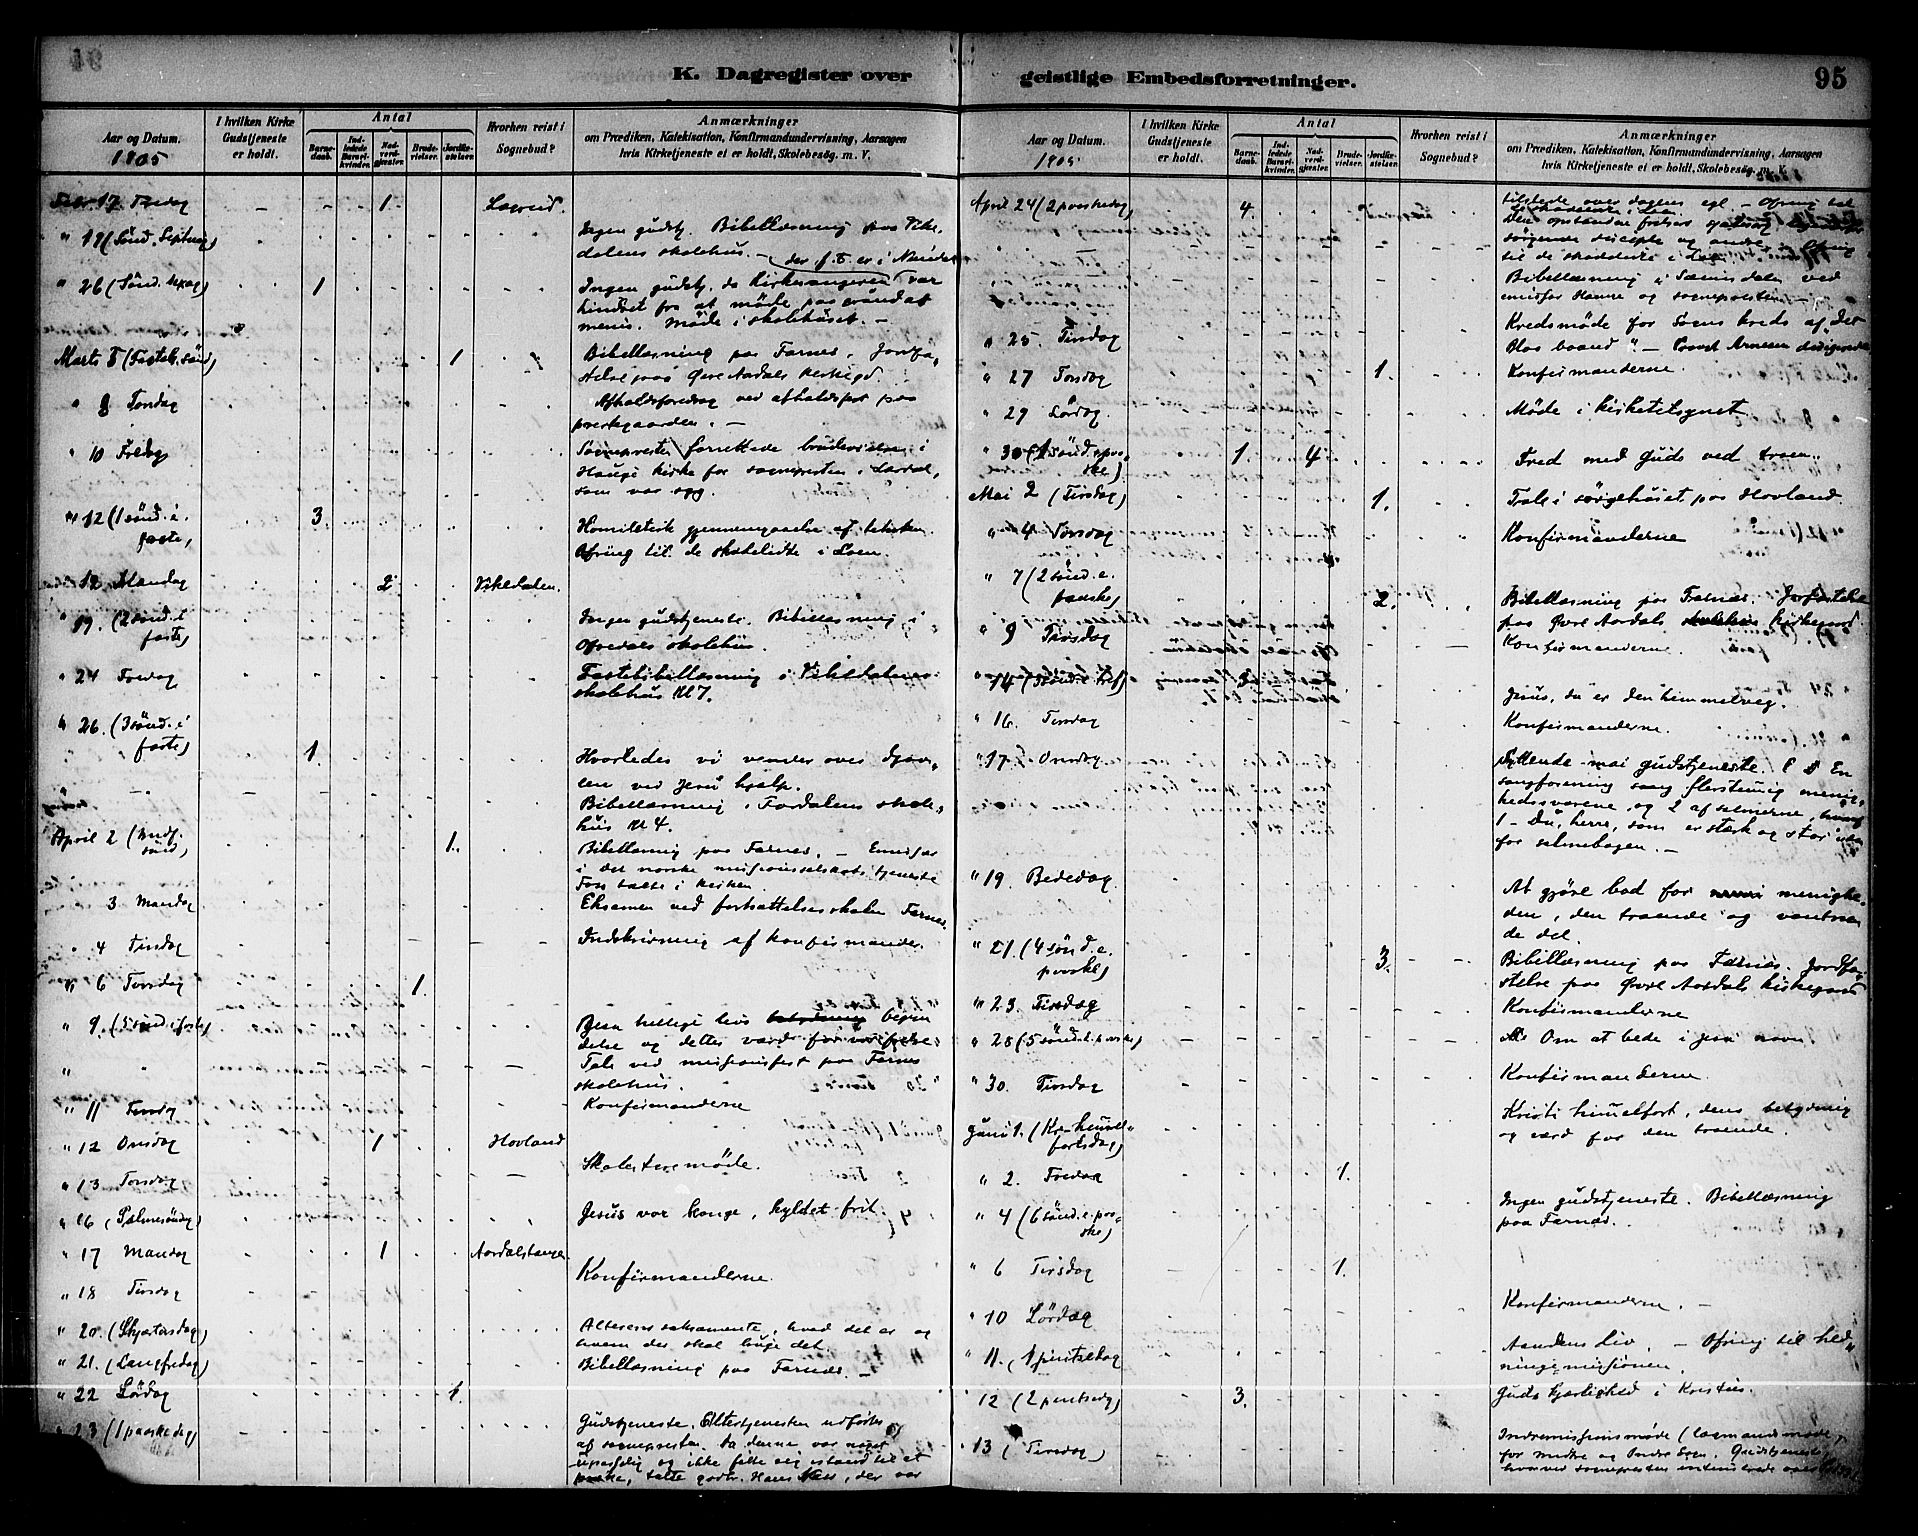 K. Dagregister over geistlige Embedsforretninger.
95
Aar og Datum.
1905
I hvilken Kirke Gudstjeneste er holdt.
Antal
Barnedaab.
Indledede Barselkvinder.
Nadverdgjester.
Brudevielser.
Jordfæstelser.
Hvorhen reist i Sognebud?
Anmærkninger
om Prædiken, Katekisation, Konfirmandundervisning, Aarsagen
hvis Kirketjeneste ei er holdt, Skolebesøg. m. V.
Febr 17 Fredag 1
" 19 (Sønd. Septuag) Ingen gudstj. Bibellæsning paa Vike
dalens skolehus. -
" 26 (Sønd. Sexag) 1 Ingen gudstj. da Kirkesangeren var
hindret fra at møde paa grund af
menis. Møde i skolehuset. -
Marts 5 (Fastel. sønd) 1 Bibellæsning paa Farnes. Jordfæ
stelse paa Øvre Aardals kirkegd.
" 8 Afholdsforedrag ved afholdsfest paa
prestegaarden. -
" 10 Fredag Sognepresten forrettede brudevielse i
Hauge kirke for sognepresten i Lærdal,
som var syg.
" 12 (1 sønd. i faste) 3. Homiletisk gjennemgaaelse af teksten
Ofring til de skadelidte i Loen.
Mandag 2 Vikedalen.
" 19. (2 sønd. i faste) Ingen gudstjeneste. Bibellæsning i
Ofredals skolehus.
" 24 Fredag Fastebibellæsning i Vikedalens
skolehus Kl 7.
" 26. (3 sønd. i faste) 1. Hvorledes vi vender over djæv
len ved Jesu hjælp.
Bibellæsning i Fardalens skole
hus Kl 4.
April 2 (Midf. sønd) 1. Bibellæsning paa Farnes. - Emissær
i det norske missionsselskabs tjeneste
Foss talte i kirken
3 Mandag Eksamen ved fortsættelsesskolen Farnes
" 4 Tirsdag Indskrivning af konfirmander.
" 6 Torsdag 1.
" 9. (5 sønd. i faste) Jesu hellige livs begyn
delse og dettes værd for vor frelse
Tale ved missionsfest paa Farnes
skolehus.
" 11 Tirsdag Konfirmanderne
" 12 Onsdag 1 Hovland
" 13 Torsdag Skolestyremøde.
" 16 (Palmesøndag) Jesus vor konge, hyldet frit.
" 17 Mandag 1 Aardalstangen
" 18 Tirsdag Konfirmanderne.
" 20. (Skjærtorsdag) Alterens sakramente, hvad det er og
hvem der skal bruge det.
" 21. (Langfredag) Bibellæsning paa Farnes. -
" 22 Lørdag 1.
" 23 (1 paaskedag) Gudstjeneste. Altertjenesten udførtes
af sognepresten. Da denne var noget
upasselig og ikke følte sig istand til at
præke, talte gaardbr. Hans Næss, der var
Aar og Datum.
1905
I hvilken Kirke Gudstjeneste er holdt.
Antal
Barnedaab.
Indledede Barselkvinder.
Nadverdgjester.
Brudevielser.
Jordfæstelser.
Hvorhen reist i Sognebud?
Anmærkninger
om Prædiken, Katekisation, Konfirmandundervisning, Aarsagen
hvis Kirketjeneste ei er holdt, Skolebesøg. m. V.
April 24 (2 paaskedag) 4. tilstede over dagens egl - Ofring til
til de skadelidte i Loen
Bibellæsning i Sæmdalen ved
emissær Hamre og sognepresten -
" 25 Tirsdag Kredsmøde for Sogns kreds af "Det
Blaa baand". - Provst Arnesen
" 27 Torsdag 1. Konfirmanderne.
" 29 Lørdag. Møde i kirketilsynet
" 30 (1 sønd. e. paaske) 1. 4. Fred med Guds ved troen.
Mai 2 (Tirsdag) 1. Tale i sørgehuset paa Hovland.
" 4 Torsdag Konfirmanderne
" 7 (2 sønd. e. paaske) 2. Bibellæsning paa Farnæs. Jordfæstelse
paa Øvre Aardals kirkegaard
" 9 Tirsdag Konfirmanderne.
" 14 (3 sønd e. ) 3. Jesus, du er den himmelveg.
" 16. Tirsdag Konfirmanderne.
" 17. Onsdag Syttende mai gudstjeneste. En
sangforening sang flerstemig menig
hedssvarene og 2 af salmerne,
1 - Du, herre, som er stærk og stor uden
for salmebogen. -
" 19. Bededag. At gjøre bod for menighe
den, den troende og vantroen
de del.
" 21. (4 sønd. e. paaske) 3. Bibellæsning paa Farnæs. Jordfæ
stelse paa Øvre Aardals kirkegaard
" 23. Tirsdag Konfirmanderne
" 28 (5 sønd. e. paaske) Om at bede i Jesu navn
" 30. Tirsdag Konfirmanderne.
Juni 1. (Kr. himmelfartsdag) Kristi himmelfart, dens betydning
og værd for den troende.
" 2. Fredag 1.
" 4 (6 sønd. e. paaske) Ingen gudstjeneste. Bibellæsning
paa Farnæs.
" 6 Tirsdag 1.
" 10 Lørdag Konfirmanderne. -
" 11. (1 pintsedag Aandens Liv. - Ofring til hed
ningemissionen.
12 (2 pintsedg) 3. Guds kjærlighed i Kristus.
13 (Tirsdag) Indremissionsmøde (lægmandsmøde,
for midtre og Indre Sogn. Gudstjeneste,
hvorved sognepresten intimerede